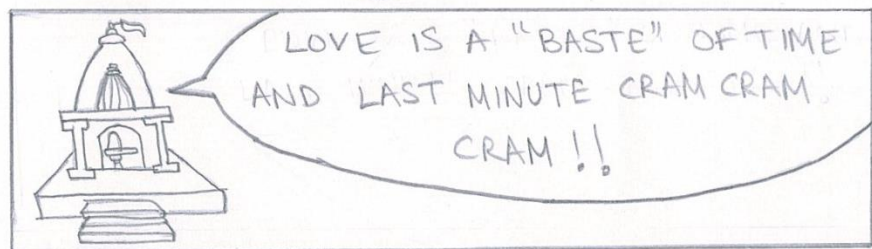 LOVE IS A "BASTE" OF TIME
AND LAST MINUTE CRAM CRAM
CRAM !!